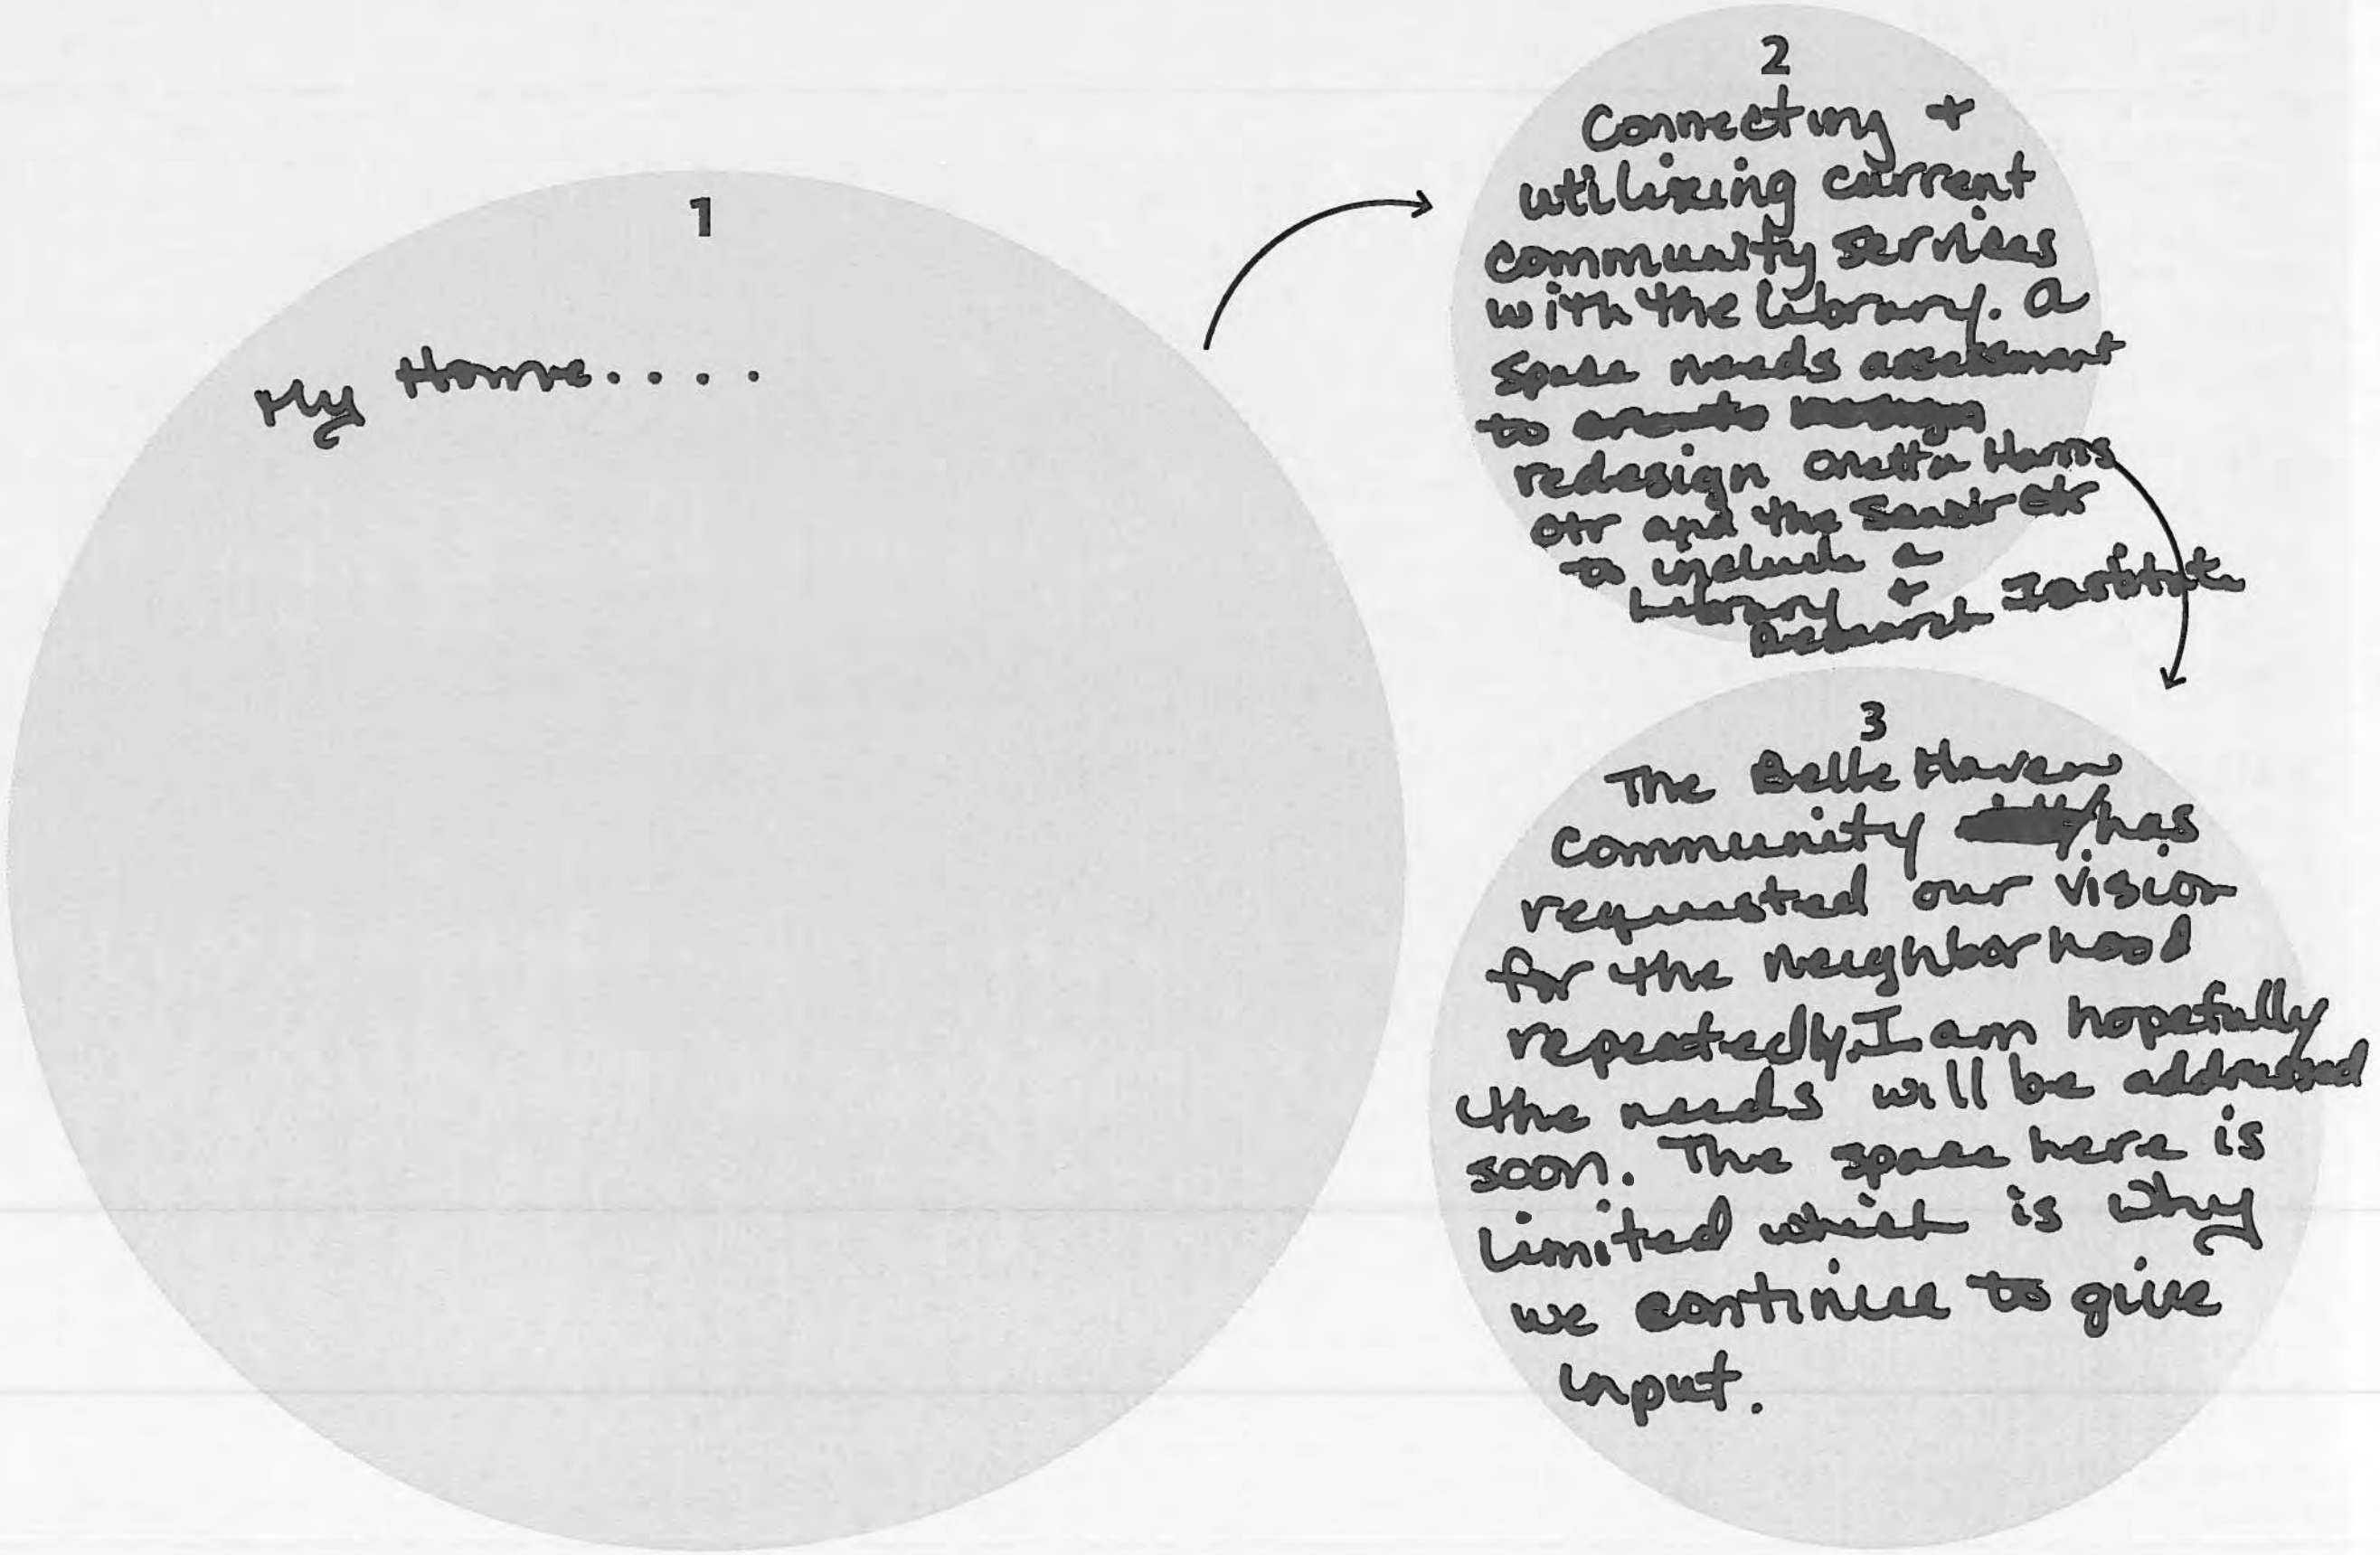 1
My Home....
2
Connecting +
utilizing current
community services
with the library. A
space needs assessment
to
redesign Onetta Harris
Ctr and the Senoir Ctr
to include a
Library +
Research Institute
3
The Belle Haven
community has
requested our vision
for the neighborhood
repeatedly. I am hopefully
the needs will be addressed
soon. The space here is
limited which is why
we continue to give
input.